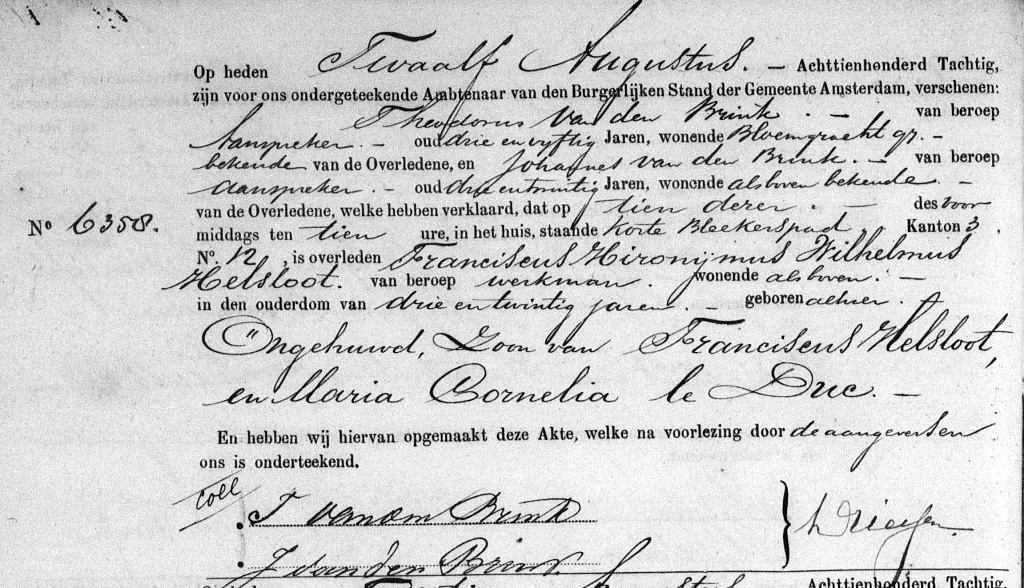 Op heden Twaalf Augustus. — Achttienhonderd Tachtig,
zijn voor ons ondergeteekende Ambtenaar van den Burgerlijken Stand der Gemeente Amsterdam, verschenen:
Theodorus van den Brink. — van beroep
Aanspreker. — oud drie en vyftig Jaren, wonende Bloemgracht 97. —
bekende van de Overledene, en Johannes van den Brink. — van beroep
aanspreker. — oud drie en twintig Jaren, wonende als boven bekende —
van de Overledene, welke hebben verklaard, dat op tien dezer. — des voor
No 6358. middags ten tien ure, in het huis, staande Korte Bleekerspad Kanton 3.
No. 12, is overleden Franciscus Hironijmus Wilhelmus
Helsloot. van beroep werkman. wonende als boven. —
in den ouderdom van drie en twintig jaren. — geboren alhier.
Ongehuwd, Zoon van Franciscus Helsloot,
en Maria Cornelia le Duc. —
En hebben wij hiervan opgemaakt deze Akte, welke na voorlezing door de aangevers en
ons is onderteekend.
coll
T van den Brink
J van den Brink
Achttienhonderd Tachtig,